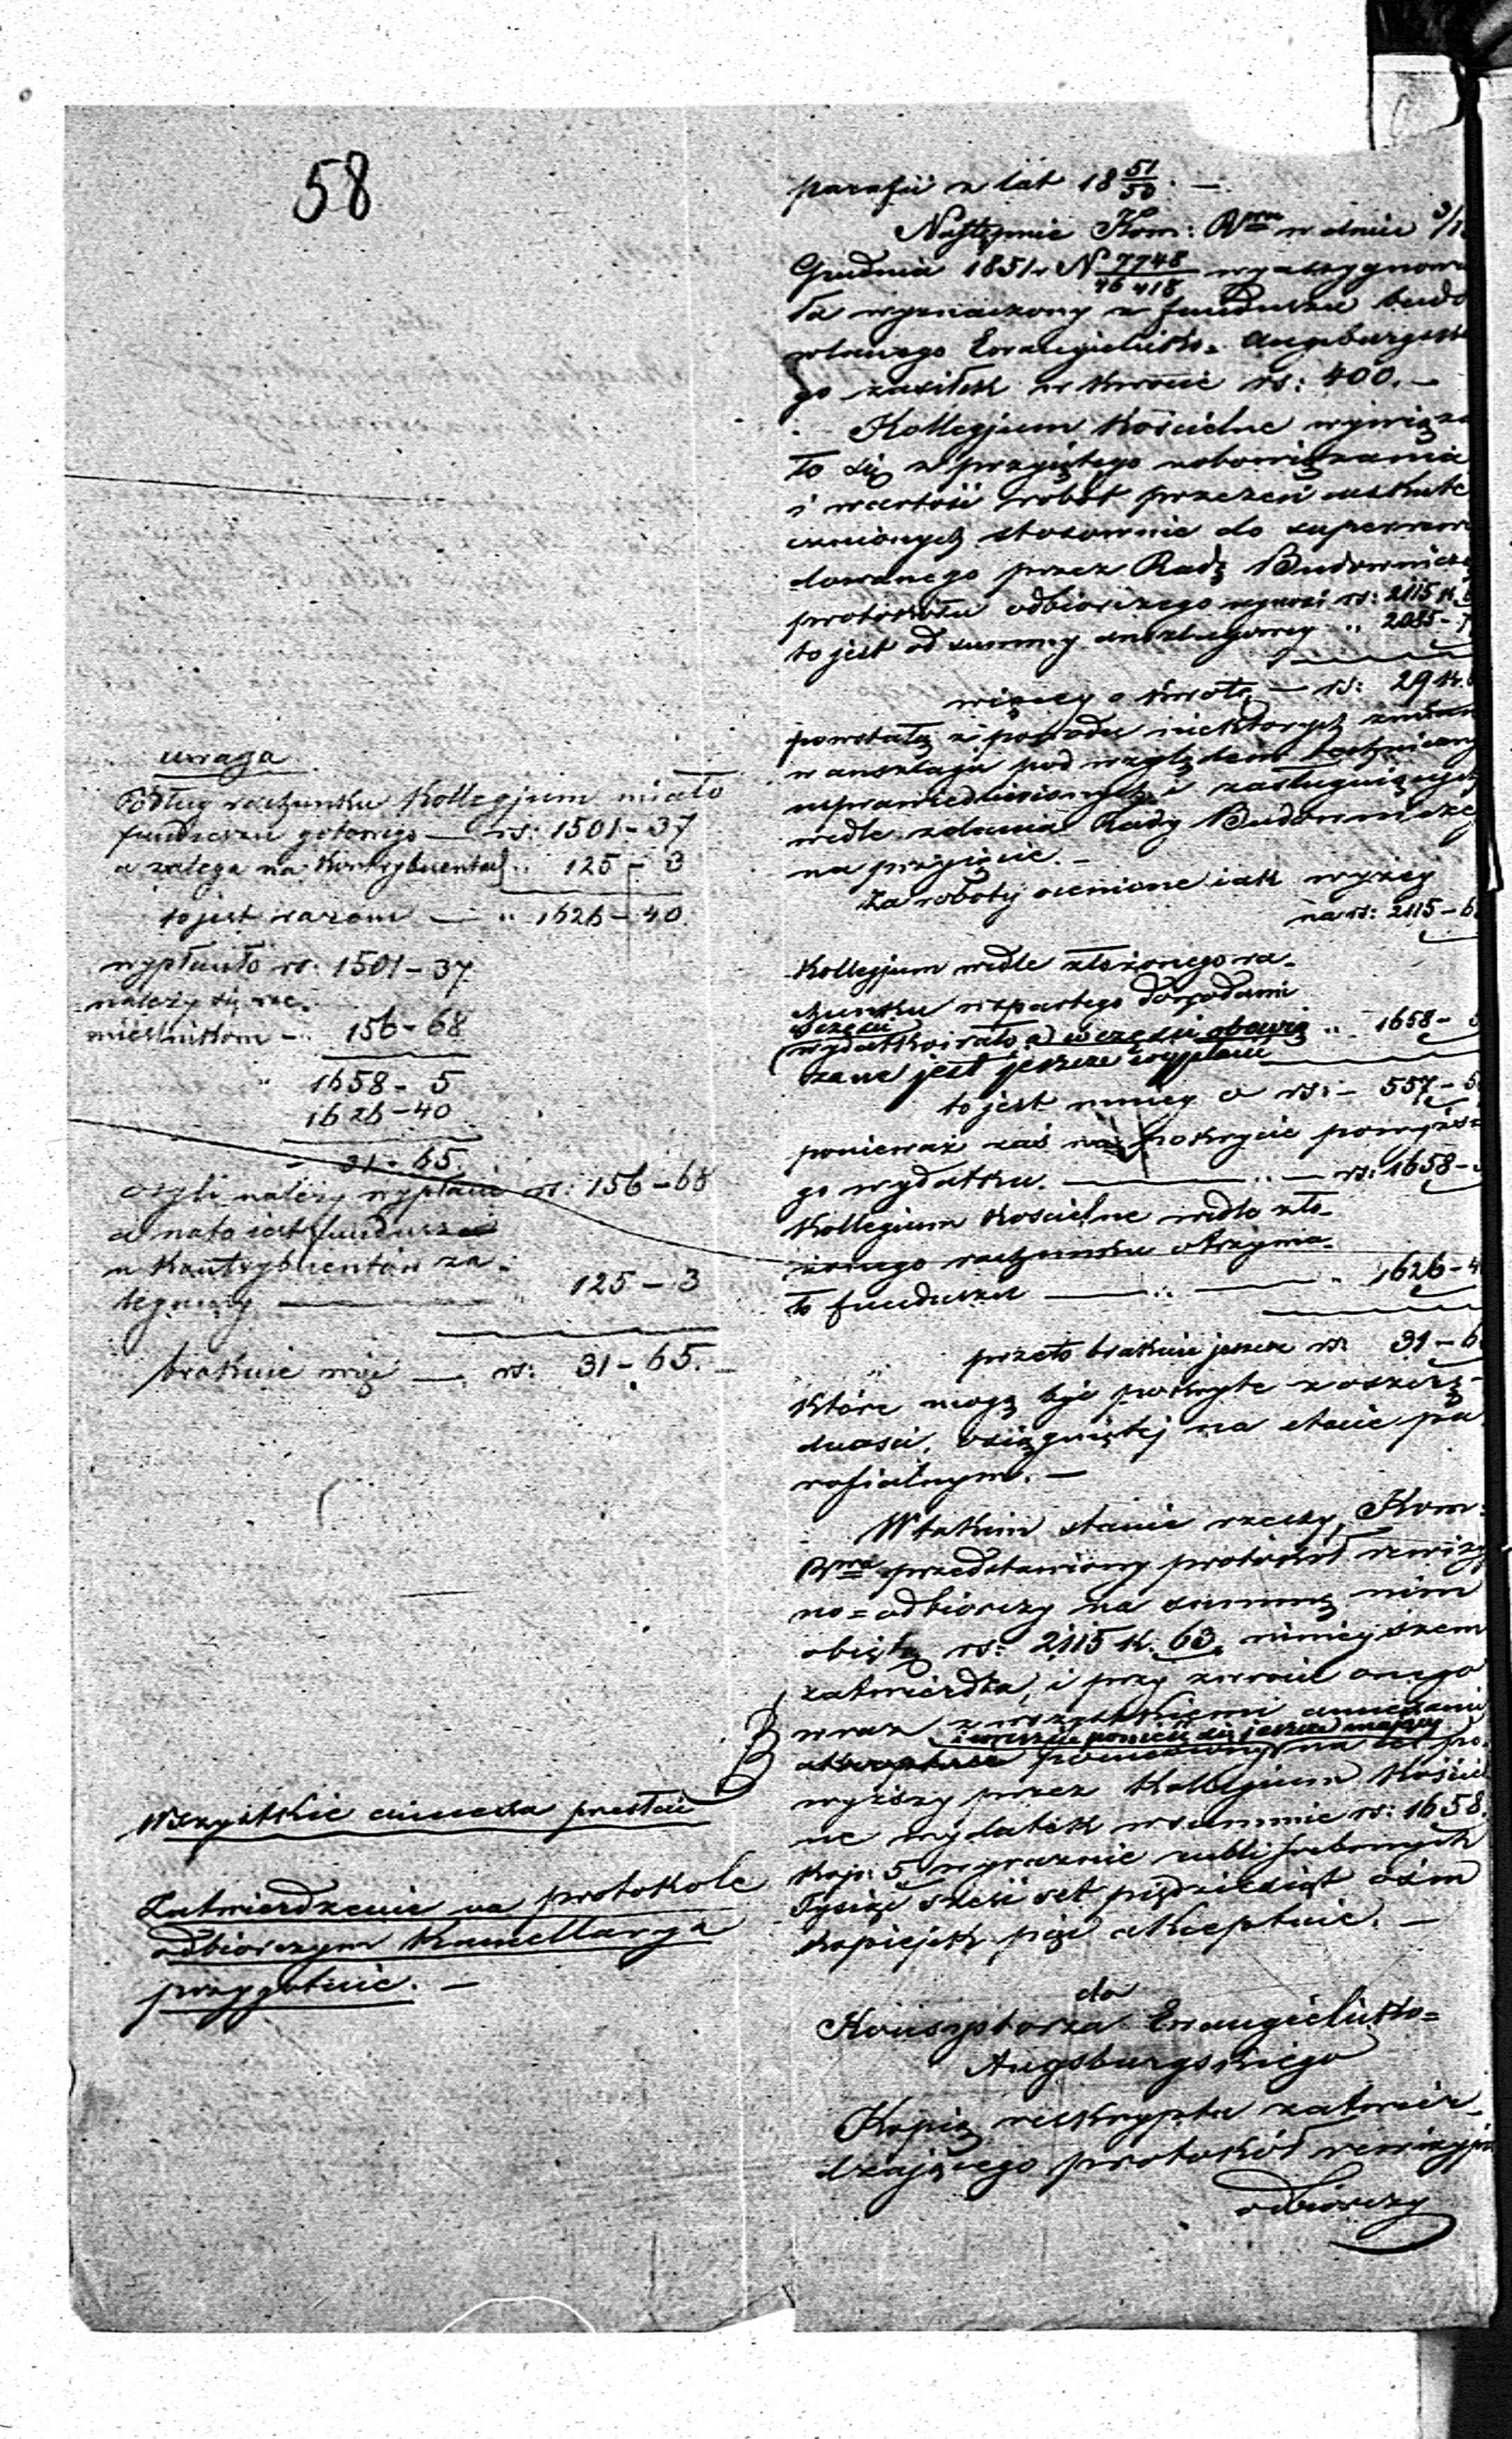 58
uwaga
Podług rachunku Kollegjum miało
funduszu gotowego — rs: 1501-37
a zalega na Kontrybuentach „ 125-3
to jest razem — „ 1626-40
wypłaciło rs. 1501-37
należy się rze-
mieślnikom - „ 156-68
„ 1658-5
1626-40
- 31-65
czyli należy wypłacić rs: 156-68
a na to jest fundusz
u Kontrybuentów za-
legający — 125-3
brakuie więc — rs: 31-65. —
Wszystkie annexa przesłać
Zatwierdzenie na protokole
odbiorczym Kancellarya
przygotuie. —
parafii z lat 18 51/50. —
Następnie Kom: Rwa w dniu 3/1
Grudnia 1851 r N 7748/46418 wyassygnowa
ła wyznaczony z funduszu budo
wlanego Ewangielicko= Augsburgskie
go zasiłek w kwocie rs: 400. —
Kollegjum Kościelne wywiąza
ło się z przyjętego zobowiązania
i wartość robót przezeń uskute
cznionych stosownie do superrewi
dowanego przez Radę Budowniczą
protokółu odbiorczego wynosi rs: 2115 k. 6
to jest od summy anszlagowey „ 2085-
więcey o kwotę — rs: 29 k.
powstałą z powodu niektorych zmian
w anszlagu pod względem technicznym
usprawiedliwionych i zasługuiących
wedle zdania Rady Budowniczey
na przyjęcie. —
Za roboty ocenione iak wyżey
na rs: 2115-6
Kollegjum wedle złożonego ra-
chunku wspartego dowodami
w części
wydatkowało a w części obowią „ 1658-
zane jest jeszcze wypłacić
to jest mniey o rs: — 557-5
ponieważ zaś na pokrycie powyższe
go wydatku. — „ — rs: 1658-
Kollegium Kościelne wedle zło-
żonego rachunku otrzyma-
ło funduszu — „ — „ 1626-4
przeto brakuie jeszcze rs: 31-6
które mogą być pokryte z oszczę-
dności, osiągniętej na etacie pa
rafialnym. —
W takim stanie rzeczy, Kom:
Rwa przedstawiony protokół rewizy
no=odbiorczy na summę nim
obiętą rs: 2115 k. 63, ninieyszem
zatwierdza, i przy zwrocie onego
wraz z wszystkiemi annexami
i wreszcie ponieść się jeszcze mający
poniesiony na cel po
wyższy przez Kollegjum Kościel
ne wydatek w summie rs: 1658.
kop: 5 wyraźnie rubli srebrnych
Tysiąc sześć set pięćdziesiąt ośm
kopiejek pięć akceptuie. —
do
Konsystorza Ewangielicko=
Augsburgskiego
Kopią reskryptu zatwier-
dzającego protokół rewizyjno
odbiorczy